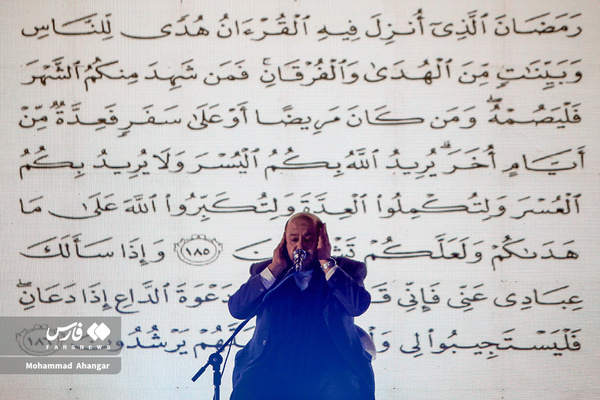 رَمَضَانَ ٱلَّذِىٓ أُنزِلَ فِيهِ ٱلْقُرْءَانُ هُدًى لِّلنَّاسِ
وَبَيِّنَٰتٍ مِّنَ ٱلْهُدَىٰ وَٱلْفُرْقَانِ ۚ فَمَن شَهِدَ مِنكُمُ ٱلشَّهْرَ
فَلْيَصُمْهُ ۖ وَمَن كَانَ مَرِيضًا أَوْ عَلَىٰ سَفَرٍ فَعِدَّةٌ مِّنْ
أَيَّامٍ أُخَرَ ۗ يُرِيدُ ٱللَّهُ بِكُمُ ٱلْيُسْرَ وَلَا يُرِيدُ بِكُمُ
ٱلْعُسْرَ وَلِتُكْمِلُوا۟ ٱلْعِدَّةَ وَلِتُكَبِّرُوا۟ ٱللَّهَ عَلَىٰ مَا
هَدَىٰكُمْ وَلَعَلَّكُمْ ١٨٥ وَإِذَا سَأَلَكَ
عِبَادِى عَنِّى فَإِنِّى دَعْوَةَ ٱلدَّاعِ إِذَا دَعَانِ ۖ
فَلْيَسْتَجِيبُوا۟ لِى يَرْشُدُونَ
فارس
FARSNEWS
Mohammad Ahangar